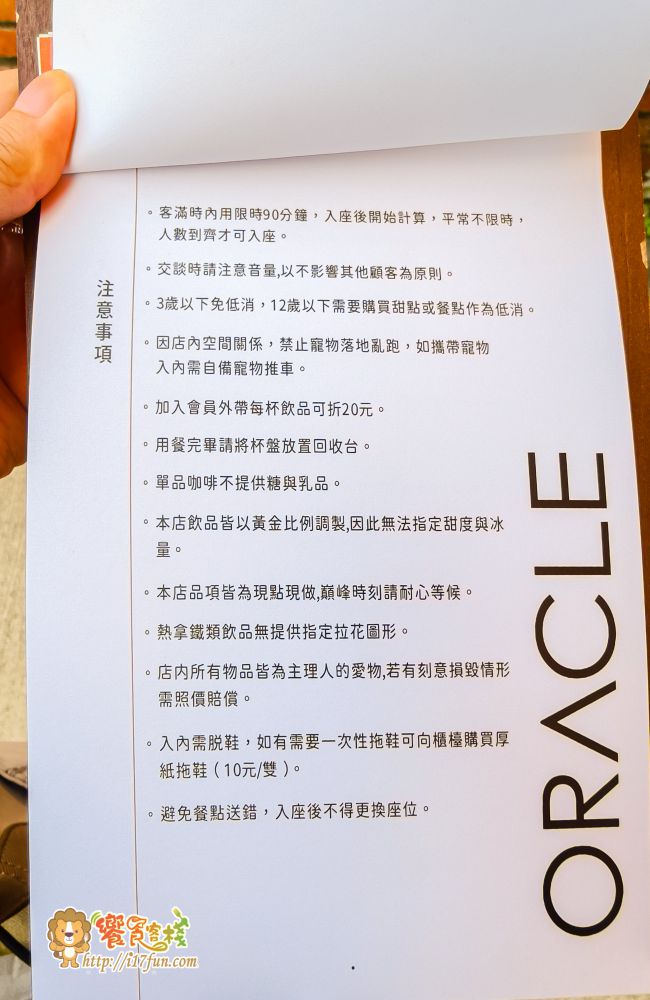 注意事項
。客滿時內用限時90分鐘，入座後開始計算，平常不限時，
人數到齊才可入座。
。交談時請注意音量,以不影響其他顧客為原則。
。3歲以下免低消，12歲以下需要購買甜點或餐點作為低消。
。因店內空間關係，禁止寵物落地亂跑，如攜帶寵物
入內需自備寵物推車。
。加入會員外帶每杯飲品可折20元。
。用餐完畢請將杯盤放置回收台。
。單品咖啡不提供糖與乳品。
。本店飲品皆以黃金比例調製,因此無法指定甜度與冰
量。
。本店品項皆為現點現做,巔峰時刻請耐心等候。
。熱拿鐵類飲品無提供指定拉花圖形。
。店內所有物品皆為主理人的愛物,若有刻意損毀情形
需照價賠償。
。入內需脫鞋，如有需要一次性拖鞋可向櫃檯購買厚
紙拖鞋（10元/雙）。
。避免餐點送錯，入座後不得更換座位。
ORACLE
饗食客棧
http://i17fun.com